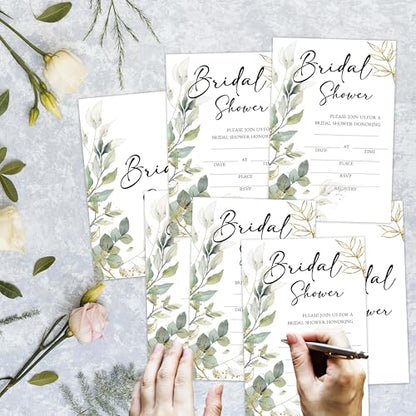 Bridal
Shower
PLEASE JOIN US FOR A
BRIDAL SHOWER HONORING
DATE AT TIME
PLACE
RSVP
Bridal
Shower
PLEASE JOIN US FOR A
BRIDAL SHOWER HONORING
DATE AT TIME
PLACE
RSVP
REGISTRY
Bridal
Bridal
Shower
PLEASE JOIN US FOR A
BRIDAL SHOWER HONORING